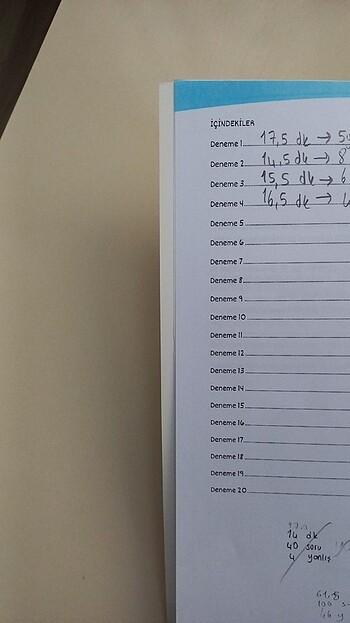 İÇİNDEKİLER
Deneme 1 17,5 dk →
Deneme 2 14,5 dk → 8
Deneme 3 15,5 dk → 6
Deneme 4 16,5 dk →
Deneme 5
Deneme 6
Deneme 7
Deneme 8
Deneme 9
Deneme 10
Deneme 11
Deneme 12
Deneme 13
Deneme 14
Deneme 15
Deneme 16
Deneme 17
Deneme 18
Deneme 19
Deneme 20
14 dk
40 soru
4 yanlış
100 s